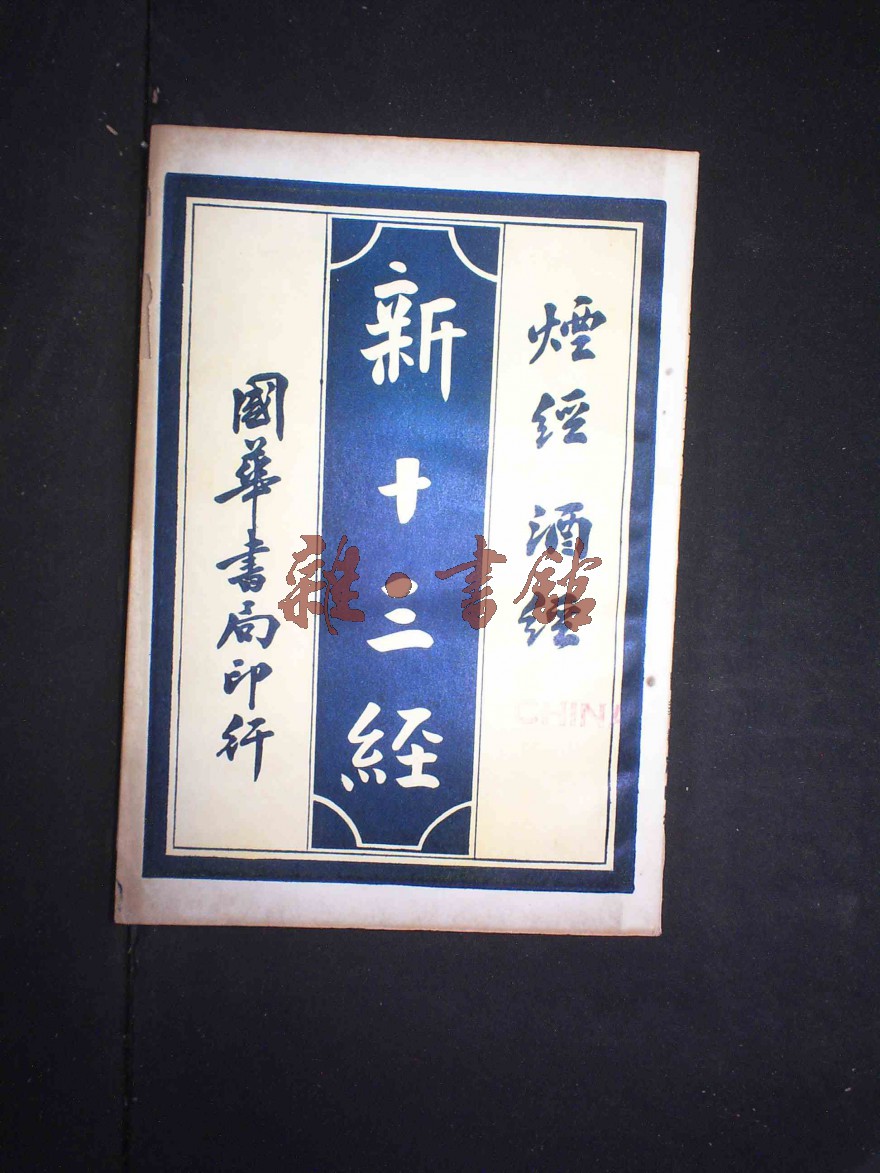 煙經 酒經
新十三經
國華書局印行
雜·書館
CHINA